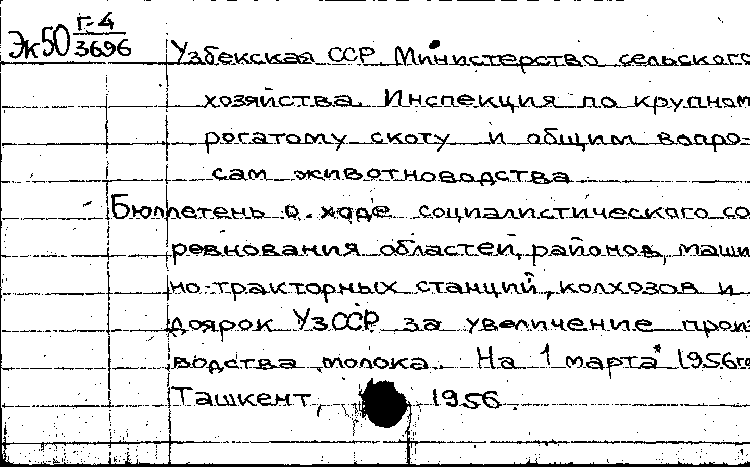 Эк50 г-4/3696
Узбекская ССР. Министерство сельского
хозяйства. Инспекция по крупном
рогатому скоту и общим вопро-
сам животноводства
Бюллетень о ходе социалистического со
ревнования областей, районов, маши
но-тракторных станций, колхозов и
доярок УзССР за увеличение произ
водства молока. На 1 марта 1956го
Ташкент, 1956.